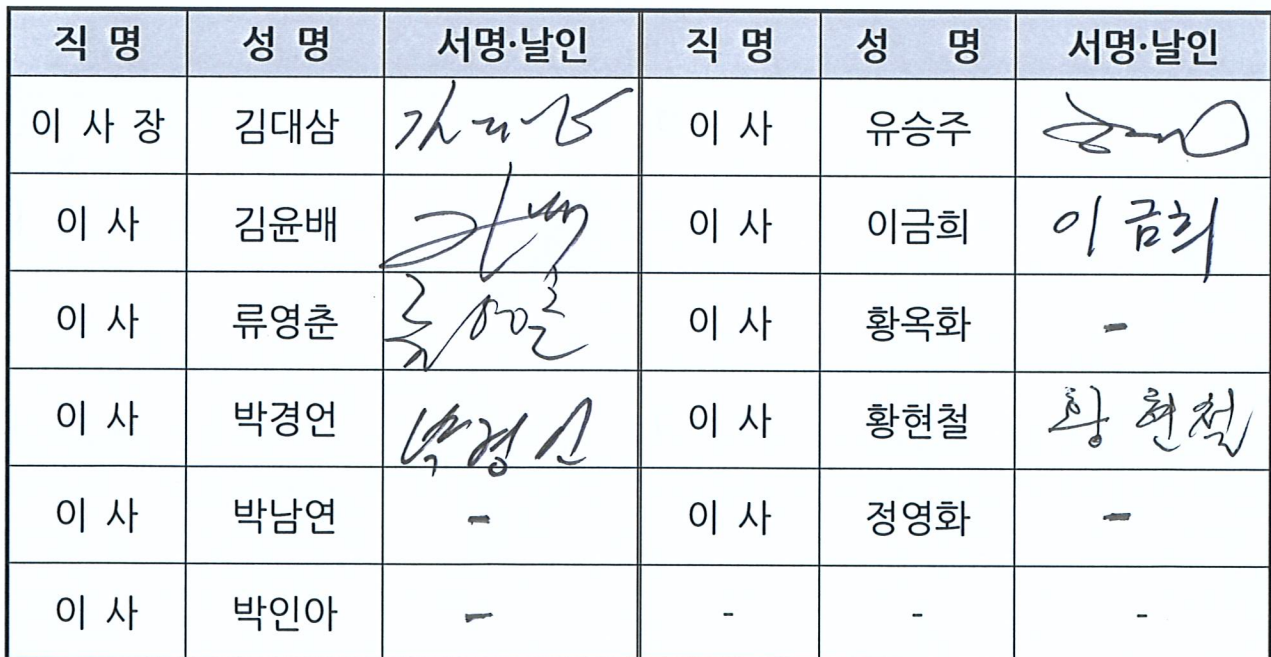 직 명 성 명 서명·날인 직 명 성 명 서명·날인
이 사 장 김대삼 이 사 유승주
이 사 김윤배 이 사 이금희 이금희
이 사 류영춘 이 사 황옥화 -
이 사 박경언 박경언 이 사 황현철 황현철
이 사 박남연 - 이 사 정영화 -
이 사 박인아 - - - -